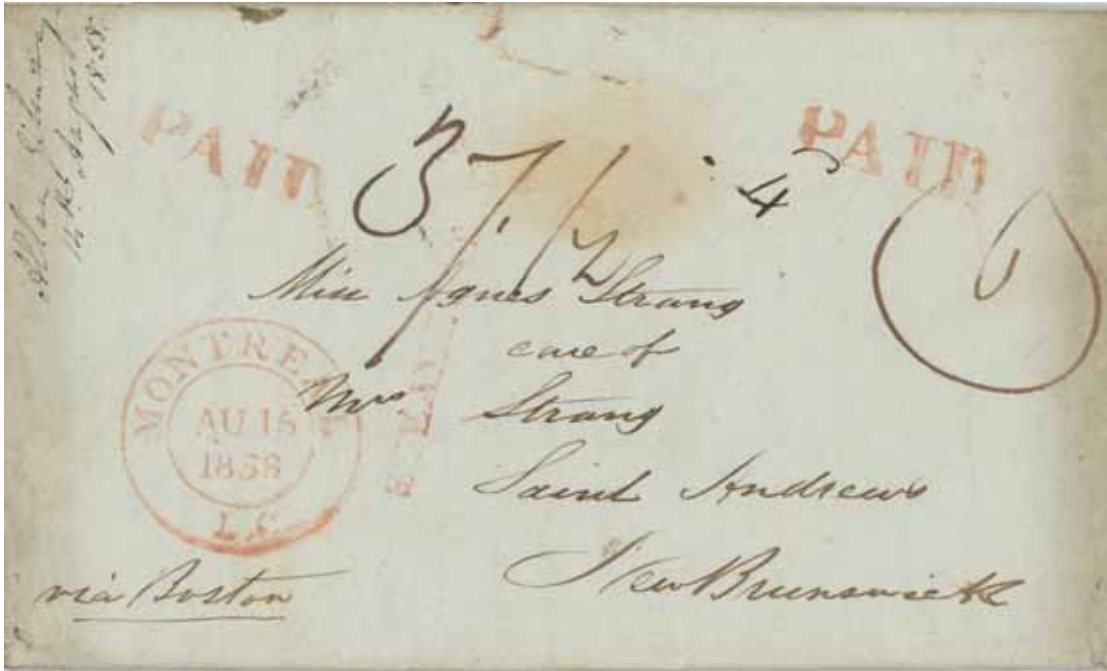 1858.
PAID
PAID
37 1/2
4
Miss Agnes Strang
care of
Mrs Strang
Saint Andrews
New Brunswick
MONTREAL
AU 15
1858
L.C.
via Boston